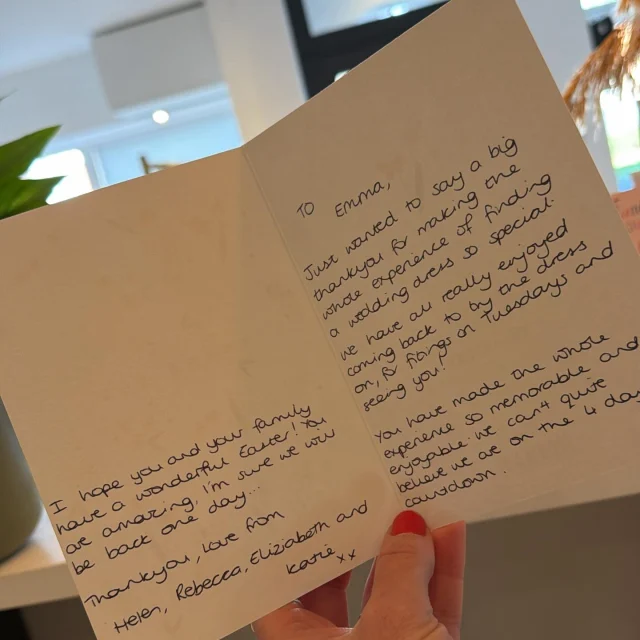 TO Emma,
Just wanted to say a big
thankyou for making the
whole experience of finding
a wedding dress so special.
we have all really enjoyed
coming back to by the dress
on, for fitings on Tuesdays and
seeing you!
You have made the whole
experience so memorable and
enjoyable we can't quite
believe we are on the 4 day
countdown.
I hope you and your family
have a wonderful Easter! You
are amazing, I'm sure we will
be back one day...
Thankyou, Love from
Helen, Rebecca, Eliziabeth and
Katie xx